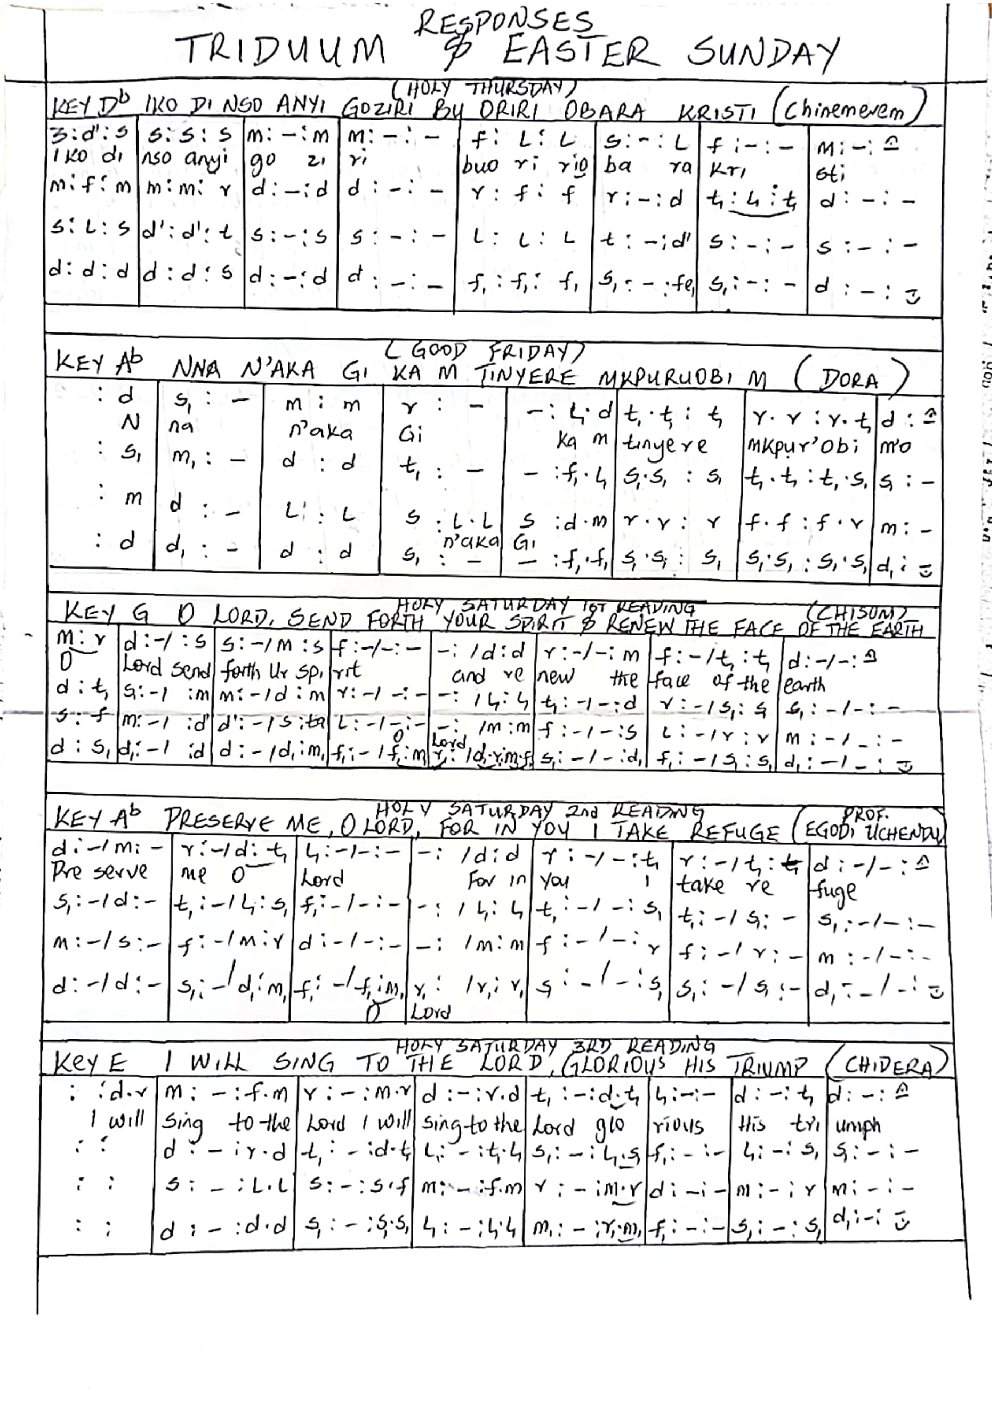 RESPONSES
TRIDUUM & EASTER SUNDAY
(HOLY THURSDAY)
KEY Db IKO DI NSO ANYI GOZIRI BU ORIRI OBARA KRISTI (Chinemerem)
s:d':s | s:s:s | m:-:m | m:-:- | f:L:L | s:-:L | f:-:- | m:-:
IKO di nso anyi go zi ri buo ri rio ba ra kri sti
m:f:m | m:m:r | d:-:d | d:-:- | r:f:f | r:-:d | t₁:L₁:t₁ | d:-:-
s:L:s | d':d':t | s:-:s | s:-:- | L:L:L | t:-:d' | s:-:- | s:-:-
d:d:d | d:d:s | d:-:d | d:-:- | f₁:f₁:f₁ | s₁:-:fe₁ | s₁:-:- | d:-:
(GOOD FRIDAY)
KEY Ab NNA N'AKA GI KA M TINYERE MKPURUOBI M (DORA)
:d | s₁:- | m:m | r:- | -:L₁.d | t₁.t₁:t₁ | r.r:r.t₁ | d:
N na n'aka Gi ka m tinyere mkpur'obi m'o
:s₁ | m₁:- | d:d | t₁:- | -:f₁.L₁ | s₁.s₁:s₁ | t₁.t₁:t₁.s₁ | s₁:-
:m | d:- | L:L | s:L.L | s:d.m | r.r:r | f.f:f.r | m:-
n'aka Gi
:d | d₁:- | d:d | s₁:- | -:f₁.f₁ | s₁.s₁:s₁ | s₁.s₁:s₁.s₁ | d₁:
HOLY SATURDAY 1ST READING (CHISOM)
KEY G O LORD, SEND FORTH YOUR SPIRIT & RENEW THE FACE OF THE EARTH
m:r | d:-/:s | s:-/m:s | f:-/-:- | -:/d:d | r:-/-:m | f:-/t₁:t₁ | d:-/-:
O Lord send forth Ur spi rit and re new the face of the earth
d:t₁ | s₁:-/:m | m:-/d:m | r:-/-:- | -:/L₁:L₁ | t₁:-/-:d | r:-/s₁:s₁ | s₁:-/-:-
s:f | m:-/:d' | d':-/s:ta | L:-/-:- | -:/m:m | f:-/-:s | L:-/r:r | m:-/-:-
O Lord
d:s₁ | d₁:-/:d | d:-/d₁:m₁ | f₁:-/f₁:m₁ | r₁:/d₁.r₁:m₁.f₁ | s₁:-/-:d₁ | f₁:-/s₁:s₁ | d₁:-/-:
HOLY SATURDAY 2nd READING PROF.
KEY Ab PRESERVE ME, O LORD, FOR IN YOU I TAKE REFUGE (EGODI UCHENDU)
d:-/m:- | r:-/d:t₁ | L₁:-/-:- | -:/d:d | r:-/-:t₁ | r:-/t₁:t₁ | d:-/-:
Pre serve me O Lord For in you I take re fuge
s₁:-/d:- | t₁:-/L₁:s₁ | f₁:-/-:- | -:/L₁:L₁ | t₁:-/-:s₁ | t₁:-/s₁:- | s₁:-/-:-
m:-/s:- | f:-/m:r | d:-/-:- | -:/m:m | f:-/-:r | f:-/r:- | m:-/-:-
d:-/d:- | s₁:-/d₁:m₁ | f₁:-/f₁:m₁ | r₁:/r₁:r₁ | s₁:-/-:s₁ | s₁:-/s₁:- | d₁:-/-:
O Lord
HOLY SATURDAY 3RD READING
Key E I WILL SING TO THE LORD, GLORIOUS HIS TRIUMP (CHIDERA)
: :d.r | m:-:f.m | r:-:m.r | d:-:r.d | t₁:-:d.t₁ | L₁:-:- | d:-:t₁ | d:-:
I will sing to the Lord I will sing to the Lord glo rious His tri umph
: : | d:-:r.d | t₁:-:d.t₁ | L₁:-:t₁.L₁ | s₁:-:L₁.s₁ | f₁:-:- | L₁:-:s₁ | s₁:-:-
: : | s:-:L.L | s:-:s.f | m:-:f.m | r:-:m.r | d:-:- | m:-:r | m:-:-
: : | d:-:d.d | s₁:-:s₁.s₁ | L₁:-:L₁.L₁ | m₁:-:r₁.m₁ | f₁:-:- | s₁:-:s₁ | d₁:-: